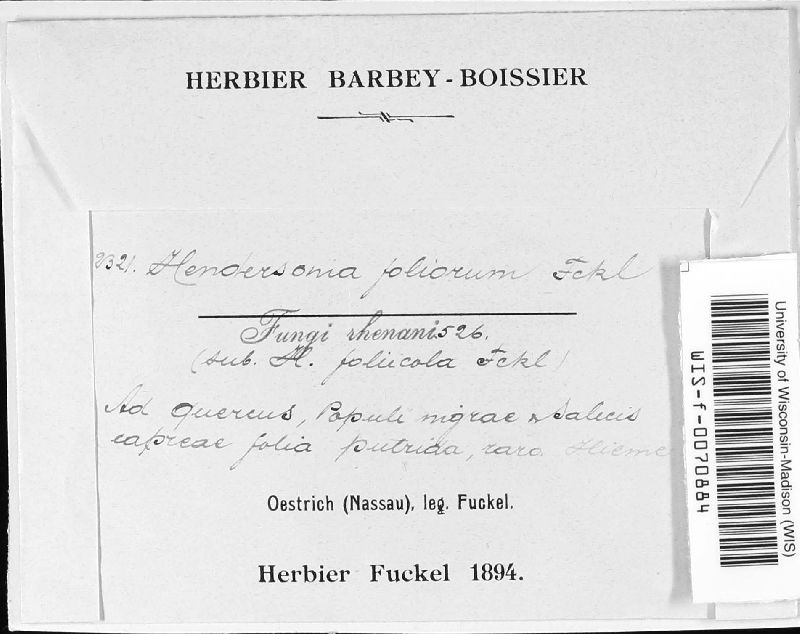 HERBIER BARBEY-BOISSIER
2321. Hendersonia foliorum Fckl
Fungi rhenani 526.
(sub. H. foliicola Fckl)
Ad Quercus, Populi nigrae & Salicis
capreae folia putrida, raro. Hieme
Oestrich (Nassau), leg. Fuckel.
Herbier Fuckel 1894.
University of Wisconsin-Madison (WIS)
WIS-f-0070884